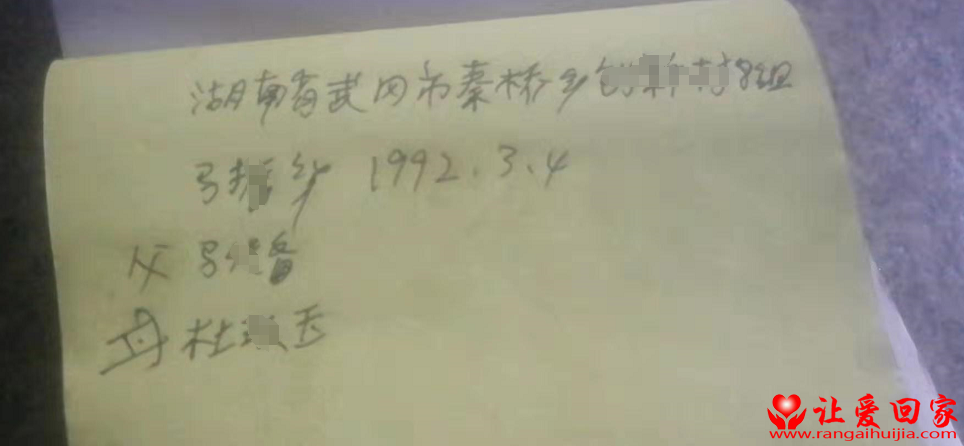 湖南省武冈市秦桥乡 组
马 华 1992.3.4
父 马 备
母 杜 玉
让爱回家
www.rangaihuijia.com